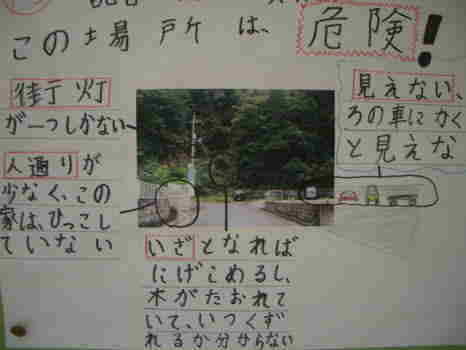 この場所は、
危険!
街灯
が一つしかない
人通りが
少なく、この
家は、ひっこし
ていない
見えない、
ろの車にかく
と見えな
いざとなれば
にげこめるし、
木がたおれて
いて、いつくず
れるか分からない